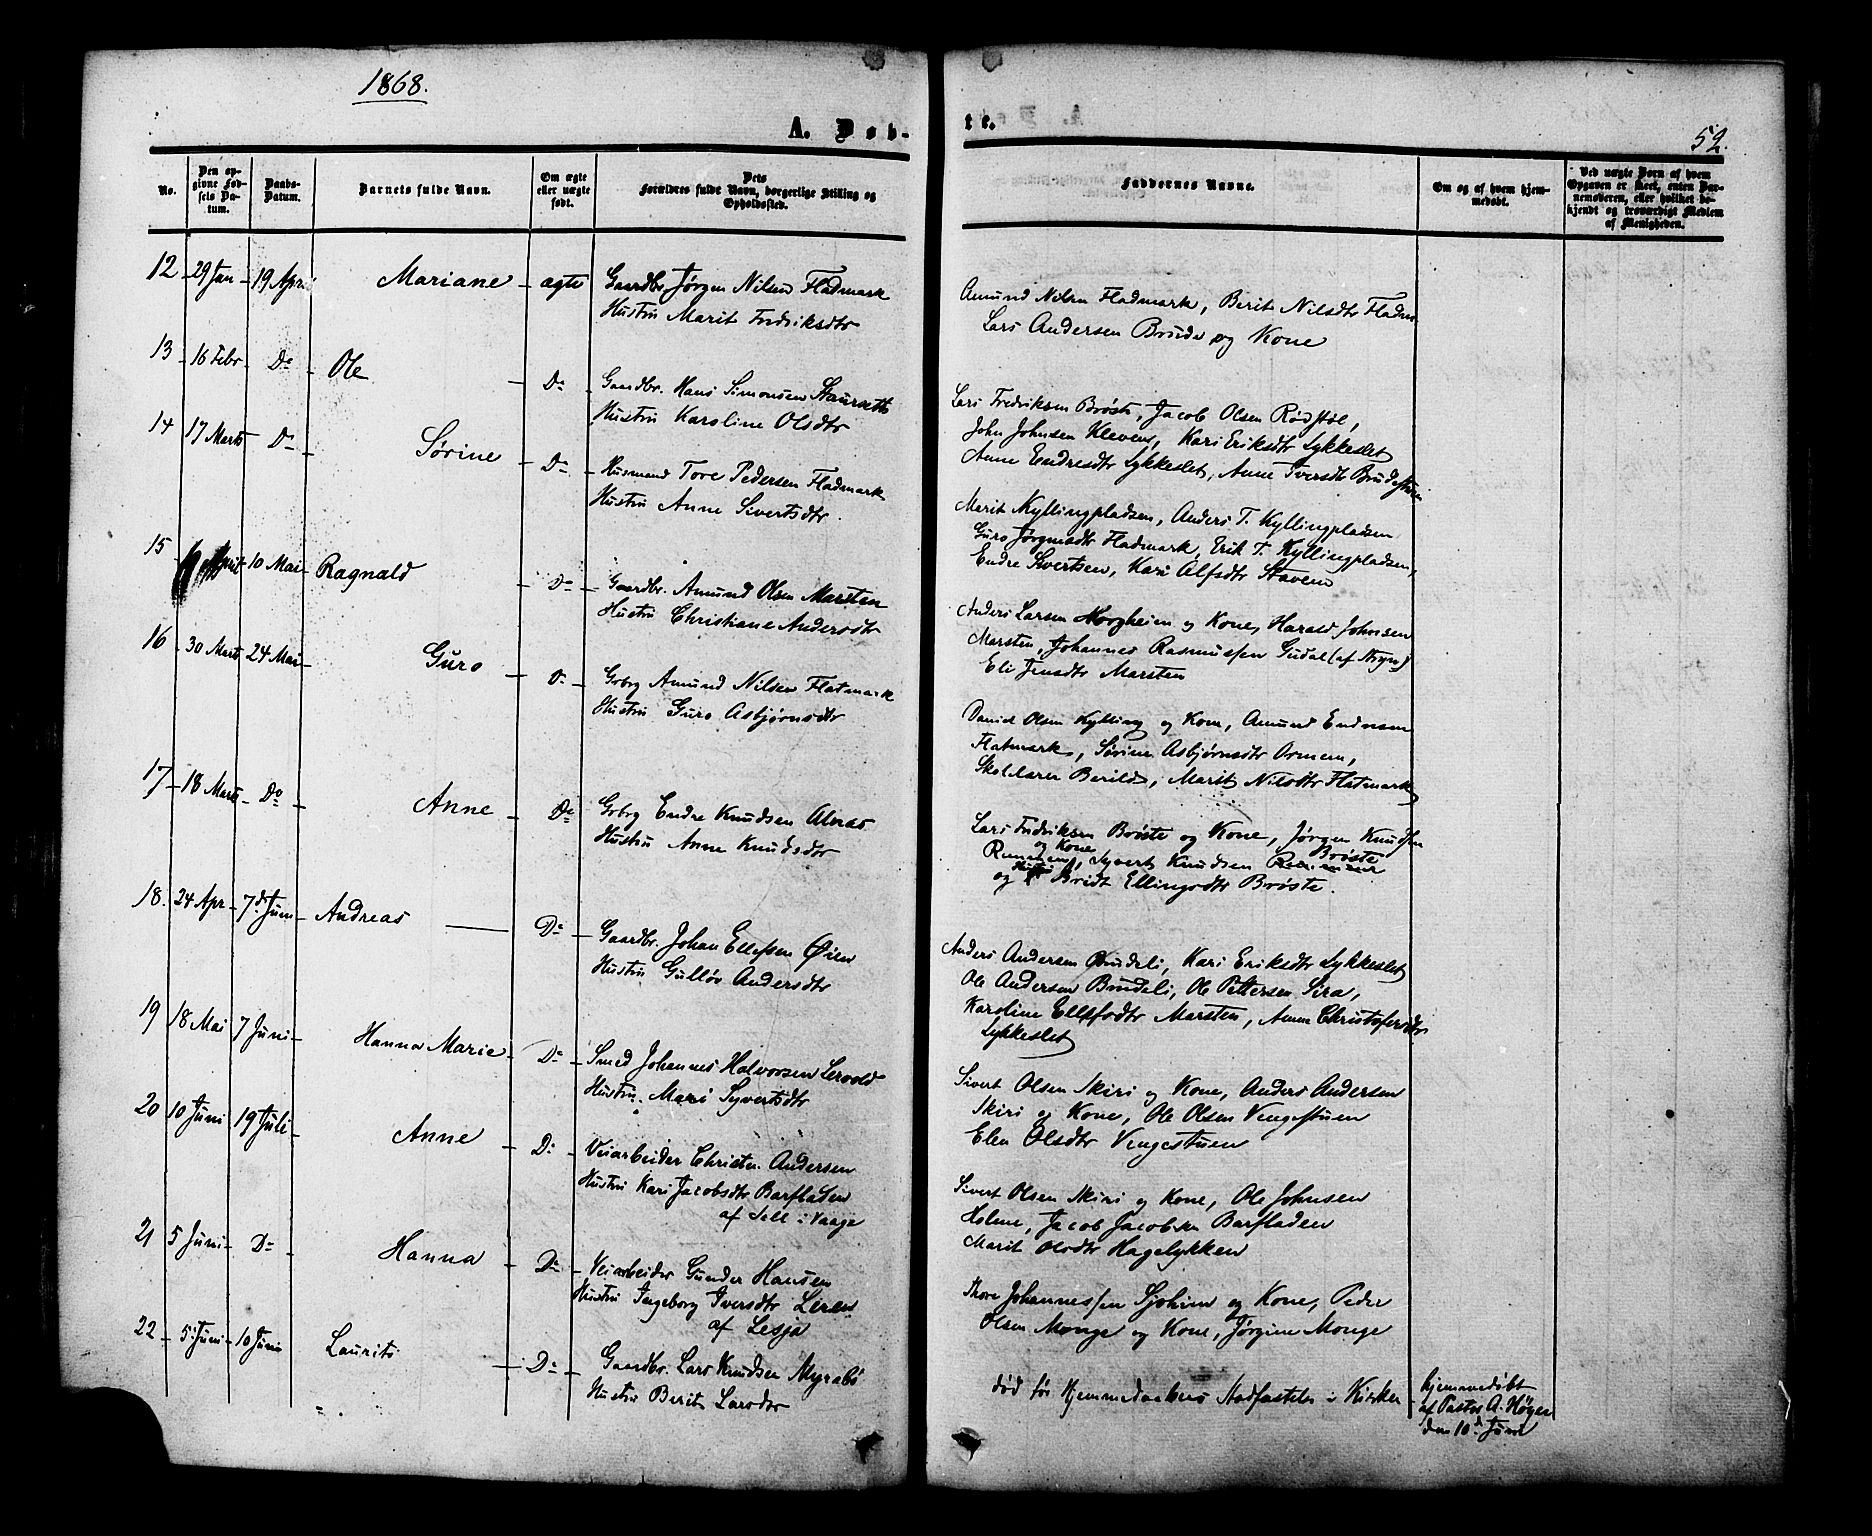 1868.
A. Døb-
te.
52.
No.
Den op-
givne Fød-
sels Da-
tum.
Daabs-
Datum.
Barnets fulde Navn.
Om ægte
eller uægte
født.
Dets
Forældres fulde Navn, borgerlige Stilling og
Opholdssted.
Faddernes Navne.
Om og af hvem hjem-
medøbt.
Ved uægte Børn af hvem
Opgaven er skeet, enten Bar-
nemoderen, eller hvilket be-
kjendt og troværdigt Medlem
af Menigheden.
12 29 Jan 19 April Mariane ægte Gaardbr. Jørgen Nilsen Fladmark
Hustru Marit Fredriksdtr
Amund Nilsen Fladmark, Berit Nilsdtr Fladm.
Lars Andersen Brude og Kone
13 16 Febr Do Ole Do Gaardbr. Hans Simonsen Staurseth
Hustru Karoline Olsdtr
Lars Fredriksen Brøste, Jacob Olsen Rødstøl,
John Johnsen Kleven, Kari Eriksdtr Lykkeslet
Anne Endresdtr Lykkeslet, Anne Iversdtr
14 17 Marts Do Sørine Do Husmand Tore Pedersen Fladmark
Hustru Anne Sivertsdtr.
Marit Kyllingpladsen, Anders T. Kyllingpladsen
Guro Jørgensdtr Fladmark, Erik T. Kyllingpladsen,
Endre Sivertsen, Kari Alfsdtr Stavem
15 April 10 Mai Ragnald Do Gaardbr. Amund Olsen Marsten
Hustru Christiane Andersdtr
Anders Larsen Horgheim og Kone, Harald Johnsen
Marsten, Johannes Rasmussen Gudal (af Stryn)
Eli Jensdtr Marsten
16 30 Marts 24 Mai Guro Do Grbrg Amund Nilsen Flatmark
Hustru Guro Asbjørnsdtr
Daniel Olsen Kylling og Kone, Amund Endresen
Flatmark, Sørine Asbjørnsdtr Ormem,
Skolelærer Berild, Marit Nilsdtr Flatmark
17 18 Marts Do Anne Do Grbrg Endre Knudsen Alnæs
Hustru Anne Knudsdtr
Lars Fredriksen Brøste og Kone, Jørgen Knudsen
og Kone Brøste
Syvert Knudsen
og Bridt Ellingsdtr Brøste.
18. 24 Apr 7de Juni Andreas Do Gaardbr. Johan Ellefsen Øien
Hustru Gulløv Andersdtr
Anders Andersen Brudeli, Kari Eriksdtr Lykkeslet
Ole Andersen Brudeli, Ole Pettersen Sira,
Karoline Ellefsdtr Marsten, Anne Christofersdtr
Lykkeslet
19 18 Mai 7 Juni Hanna Marie Do Smed Johannes Halvorsen Lervold
Hustru Mari Syvertsdtr
Sivert Olsen Skiri og Kone, Anders Andersen
Skiri og Kone, Ole Olsen Vengestuen
Elen Olsdtr Vengestuen
20 10 Juni 19 Juli Anne Do Veiarbeider Christen Andersen
Hustru Kari Jacobsdtr Barfladen
af Sell i Vaage
Sivert Olsen Skiri og Kone, Ole Johnsen
Holme, Jacob Jacobsen Barfladen
Marit Olsdtr Hagelykken
21 5 Juni Do Hanna Do Veiarbeider Gunder Hansen
Hustru Ingeborg Iversdtr Leren
af Lesja
Thore Johannessen Sjohim og Kone, Peder
Olsen Monge og Kone, Jørgine Monge
22 5 Juni 10 Juni Laurits Do Gaardbr. Lars Knudsen Myrabø
Hustru Berit Larsdtr
død før Hjemmedaabens Stadfæstelse i Kirken
hjemmedøbt
af Pastor A. Høyer
den 10de Juni